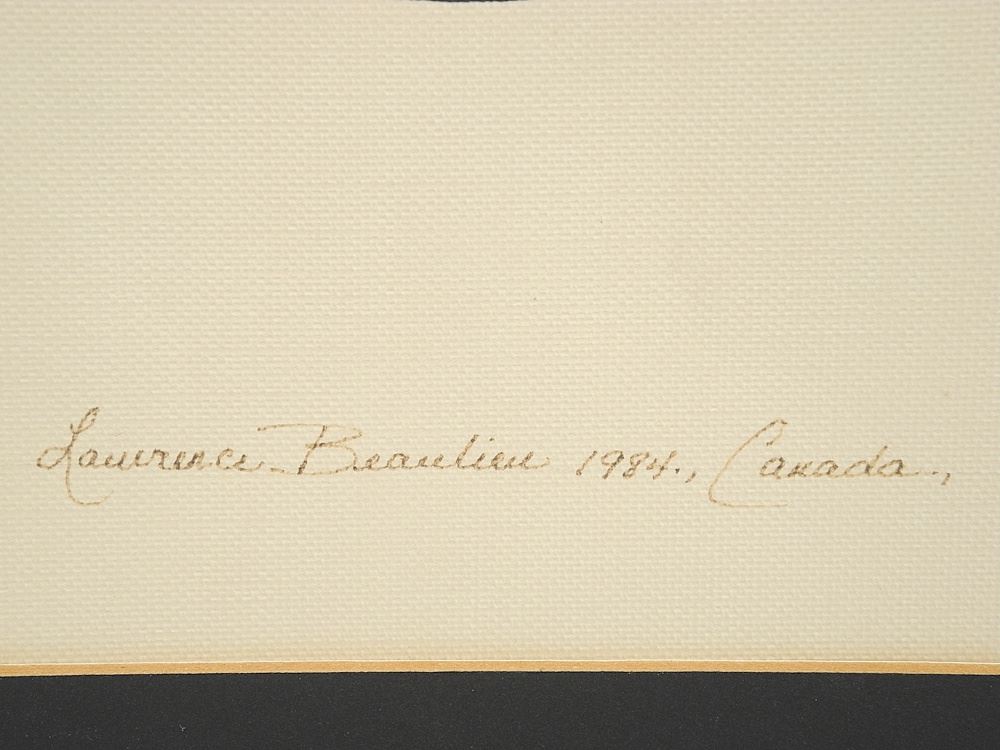 Lawrence Beaulieu 1984., Canada.,